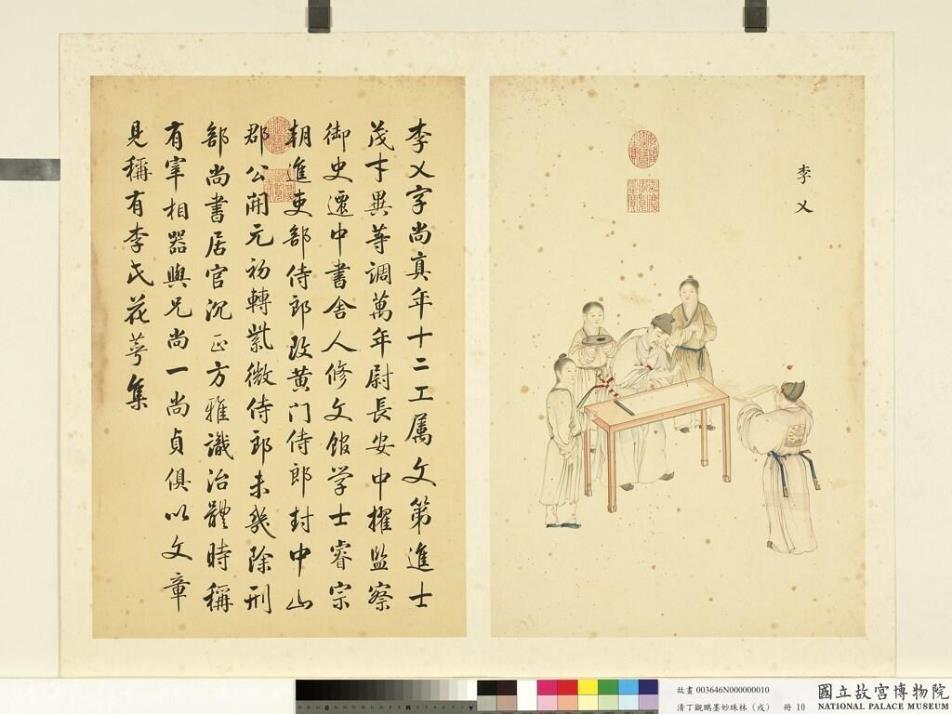 李乂
李乂字尚真年十二工属文第進士
茂才異等調萬年尉長安中擢監察
御史遷中書舍人修文館学士睿宗
朝進吏部侍郎改黄门侍郎封中山
郡公開元初轉紫微侍郎未幾除刑
部尚書居官沉正方雅識治體時稱
有宰相器與兄尚一尚貞俱以文章
見稱有李氏花萼集
故畫 003646N000000010
清丁觀鵬墨妙珠林(戌) 冊 10
國立故宮博物院
NATIONAL PALACE MUSEUM